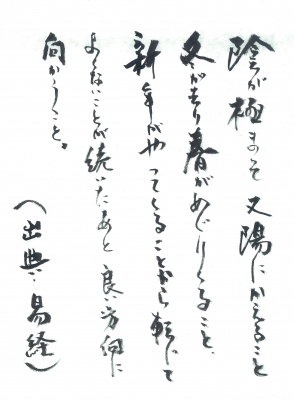 陰が極まって又陽にかえること
冬が去り春がめぐりくること、
新年がやってくることから転じて
よくないことが続いたあと良い方向に
向かうこと。
（出典：易経）